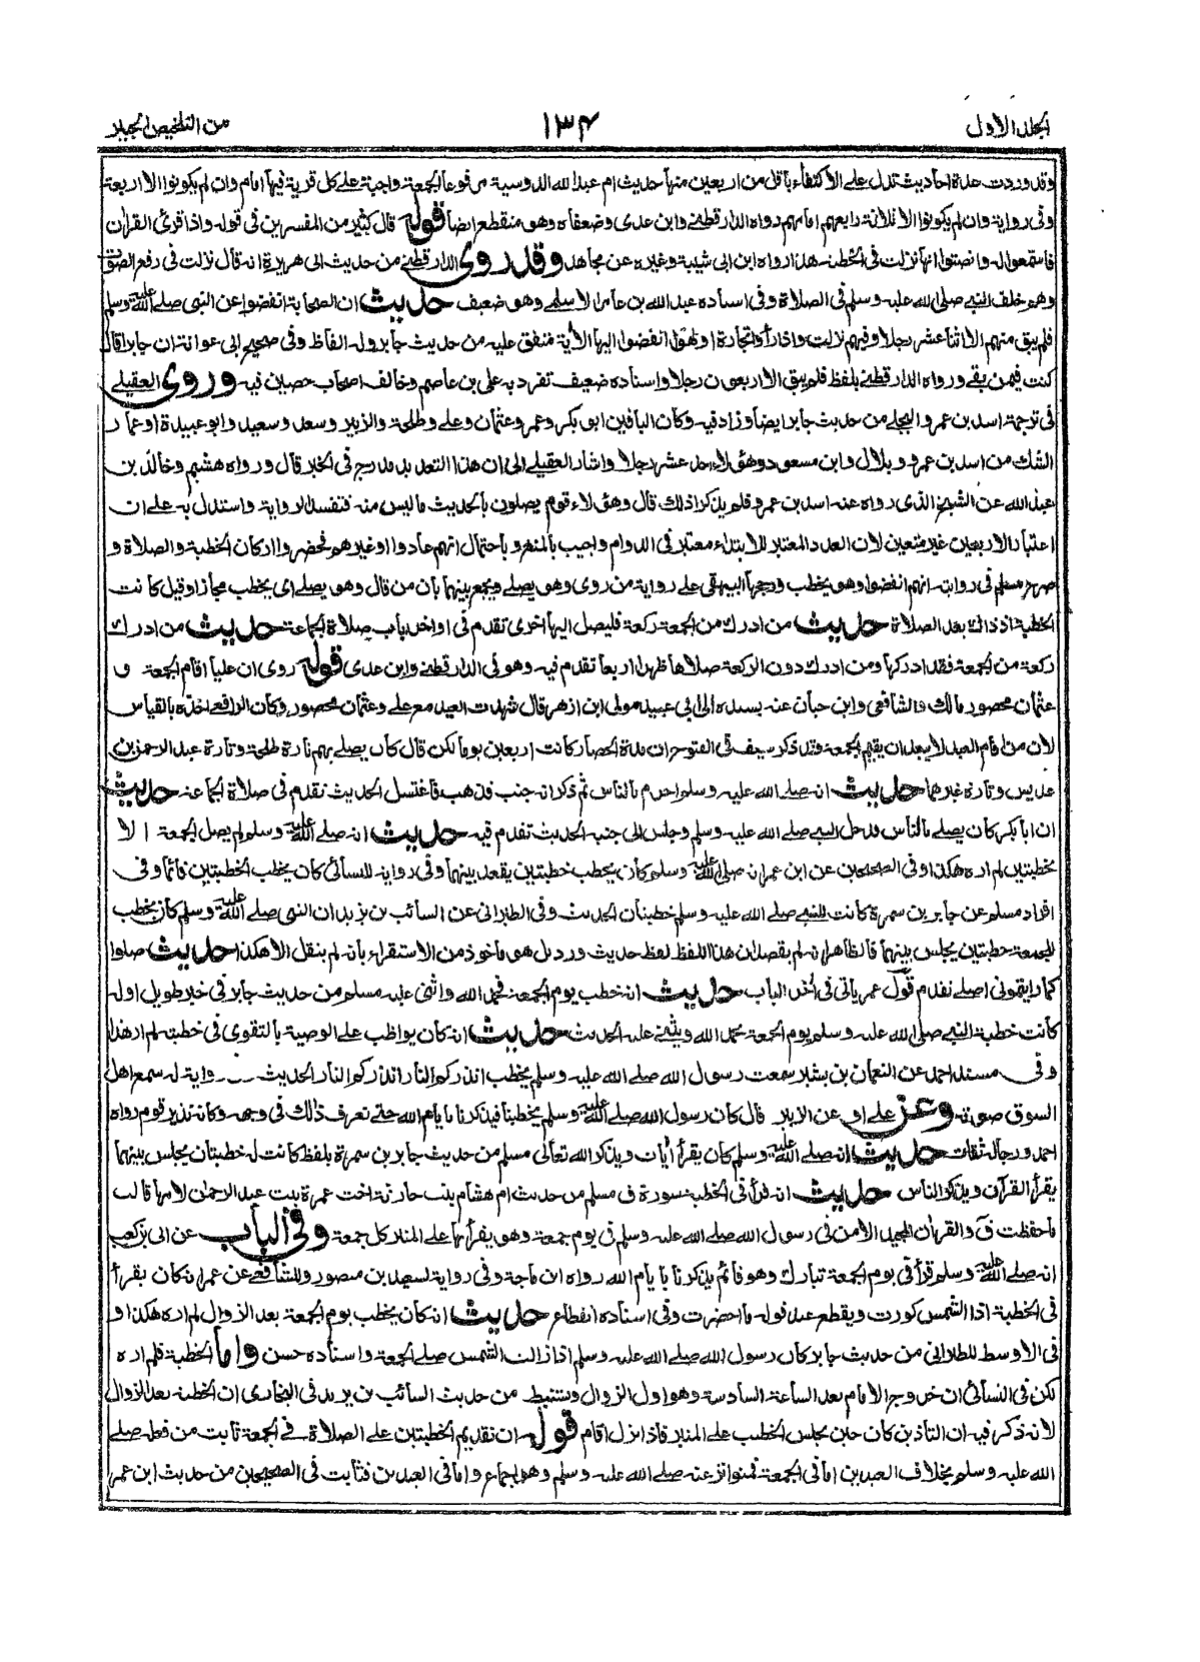 الجلد الاول
١٣٤
من التلخيص الحبير
وقد وردت عدة احاديث تدل على الاكتفاء باقل من اربعين منها حديث ام عبد الله الدوسية مرفوعا الجمعة واجبة على كل قرية فيها امام وان لم يكونوا الا اربعة
وفى رواية وان لم يكونوا الا ثلاثة رابعهم امامهم رواه الدارقطنى وابن عدى وضعفاه وهو منقطع ايضا قوله قال كثير من المفسرين فى قوله واذا قرئ القرآن
فاستمعوا له وانصتوا انها نزلت فى الخطبة هذا رواه ابن ابى شيبة وغيره عن مجاهد وقد روى الدارقطنى من حديث ابى هريرة انه قال نزلت فى رفع الصوت
وهو خلف النبى صلى الله عليه وسلم فى الصلاة وفى اسناده عبد الله بن عامر الاسلمى وهو ضعيف حديث ان الصحابة انفضوا عن النبى صلى الله عليه وسلم
فلم يبق منهم الا اثنا عشر رجلا وفيهم نزلت واذا رأوا تجارة او لهوا انفضوا اليها الأية متفق عليه من حديث جابر وله الفاظ وفى صحيح ابى عوانة ان جابرا قال
كنت فيمن بقى ورواه الدارقطنى بلفظ فلم يبق الا اربعون رجلا واسناده ضعيف تفرد به على بن عاصم وخالف اصحاب حصين فيه وروى العقيلى
فى ترجمة اسد بن عمرو البجلى من حديث جابر ايضا وزاد فيه وكان الباقين ابو بكر وعمر وعثمان وعلى وطلحة والزبير وسعد وسعيد وابو عبيدة او عمار
الشك من اسد بن عمرو وبلال وابن مسعود وهؤلاء احد عشر رجلا واشار العقيلى الى ان هذا التعديد مدرج فى الخبر قال ورواه هشيم وخالد بن
عبد الله عن الشيخ الذى رواه عنه اسد بن عمرو فلم يذكرا ذلك قال وهؤلاء قوم يصلون بالحديث ما ليس منه فتفسد الرواية واستدل به على ان
اعتبار الاربعين غير متعين لان العدد المعتبر للابتداء معتبر فى الدوام واجيب بالمنع وباحتمال انهم عادوا او غيرهم فحضروا اركان الخطبة والصلاة و
صرح مسلم فى روايته انهم انفضوا وهو يخطب ورجحها البيهقى على رواية من روى وهو يصلى ويجمع بينهما بأن من قال وهو يصلى اى يخطب مجازا وقيل كانت
الخطبة اذ ذاك بعد الصلاة حديث من ادرك من الجمعة ركعة فليصل اليها أخرى تقدم فى اواخر باب صلاة الجماعة حديث من ادرك
ركعة من الجمعة فقد ادركها ومن ادرك دون الركعة صلاها ظهرا اربعا تقدم فيه وهو فى الدارقطنى وابن عدى قوله روى ان عليا اقام الجمعة و
عثمان محصور مالك والشافعى وابن حبان عنه بسنده الى ابى عبيد مولى ابن ازهر قال شهدت العيد مع على وعثمان محصور وكأن الرافعى اخذه بالقياس
لان من اقام العيد لا يبعد ان يقيم الجمعة وقد ذكر سيف فى الفتوح ان مدة الحصار كانت اربعين يوما لكن قال كان يصلى بهم تارة طلحة وتارة عبد الرحمن بن
عديس وتارة غيرهما حديث انه صلى الله عليه وسلم احرم بالناس ثم ذكر انه جنب فذهب فاغتسل الحديث تقدم فى صلاة الجماعة حديث
ان ابا بكر كان يصلى بالناس فدخل النبى صلى الله عليه وسلم وجلس الى جنبه الحديث تقدم فيه حديث انه صلى الله عليه وسلم لم يصل الجمعة الا
بخطبتين لم اره هكذا وفى الصحيحين عن ابن عمر انه صلى الله عليه وسلم كان يخطب خطبتين يقعد بينهما وفى رواية للنسائى كان يخطب الخطبتين قائما وفى
افراد مسلم عن جابر بن سمرة كانت للنبى صلى الله عليه وسلم خطبتان الحديث وفى الطبرانى عن السائب بن يزيد ان النبى صلى الله عليه وسلم كان يخطب
للجمعة خطبتين يجلس بينهما فالظاهر انه لم يقصد ان هذا اللفظ لفظ حديث ورد بل هو مأخوذ من الاستقراء بأنه لم ينقل الا هكذا حديث صلوا
كما رايتمونى اصلى تقدم قول عمر ياتى فى أخر الباب حديث انه خطب يوم الجمعة فحمد الله واثنى عليه مسلم من حديث جابر فى خبر طويل اوله
كانت خطبة النبى صلى الله عليه وسلم يوم الجمعة يحمد الله ويثنى عليه الحديث حديث انه كان يواظب على الوصية بالتقوى فى خطبته لم ار هذا
وفى مسند احمد عن النعمان بن بشير سمعت رسول الله صلى الله عليه وسلم يخطب انذركم النار انذركم النار الحديث واية له سمع اهل
السوق صوته وعن على او عن الزبير قال كان رسول الله صلى الله عليه وسلم يخطبنا فيذكرنا بايام الله حتى تعرف ذلك فى وجهه وكأنه نذير قوم رواه
احمد ورجاله ثقات حديث انه صلى الله عليه وسلم كان يقرأ أيات ويذكر الله تعالى مسلم من حديث جابر بن سمرة بلفظ كانت له خطبتان يجلس بينهما
يقرأ القرآن ويذكر الناس حديث انه قرأ فى الخطبة سورة ق مسلم من حديث ام هشام بنت حارثة اخت عمرة بنت عبد الرحمن لامها قالت
ما حفظت ق والقرآن المجيد الا من فى رسول الله صلى الله عليه وسلم فى يوم جمعة وهو يقرأ بها على المنبر كل جمعة وفى الباب عن ابى بن كعب
انه صلى الله عليه وسلم قرأ فى يوم الجمعة تبارك وهو قائم يذكرنا بايام الله رواه ابن ماجة وفى رواية لسعيد بن منصور وللشافعى عن عمر انه كان يقرأ
فى الخطبة اذا الشمس كورت ويقطع عند قوله ما احضرت وفى اسناده انقطاع حديث انه كان يخطب يوم الجمعة بعد الزوال لم اره هكذا و
فى الاوسط للطبرانى من حديث جابر كان رسول الله صلى الله عليه وسلم اذا زالت الشمس صلى الجمعة واسناده حسن واما الخطبة فلم اره
لكن فى النسائى ان خروج الامام بعد الساعة السادسة وهو اول الزوال ويستنبط من حديث السائب بن يزيد فى البخارى ان الخطبة بعد الزوال
لانه ذكر فيه ان التأذين كان حين يجلس الخطيب على المنبر فاذا نزل اقام قوله ان تقديم الخطبتين على الصلاة فى الجمعة ثابت من فعله صلى
الله عليه وسلم بخلاف العيدين اما فى الجمعة فمتواتر عنه صلى الله عليه وسلم وهو اجماع واما فى العيدين فثابت فى الصحيحين من حديث ابن عمر